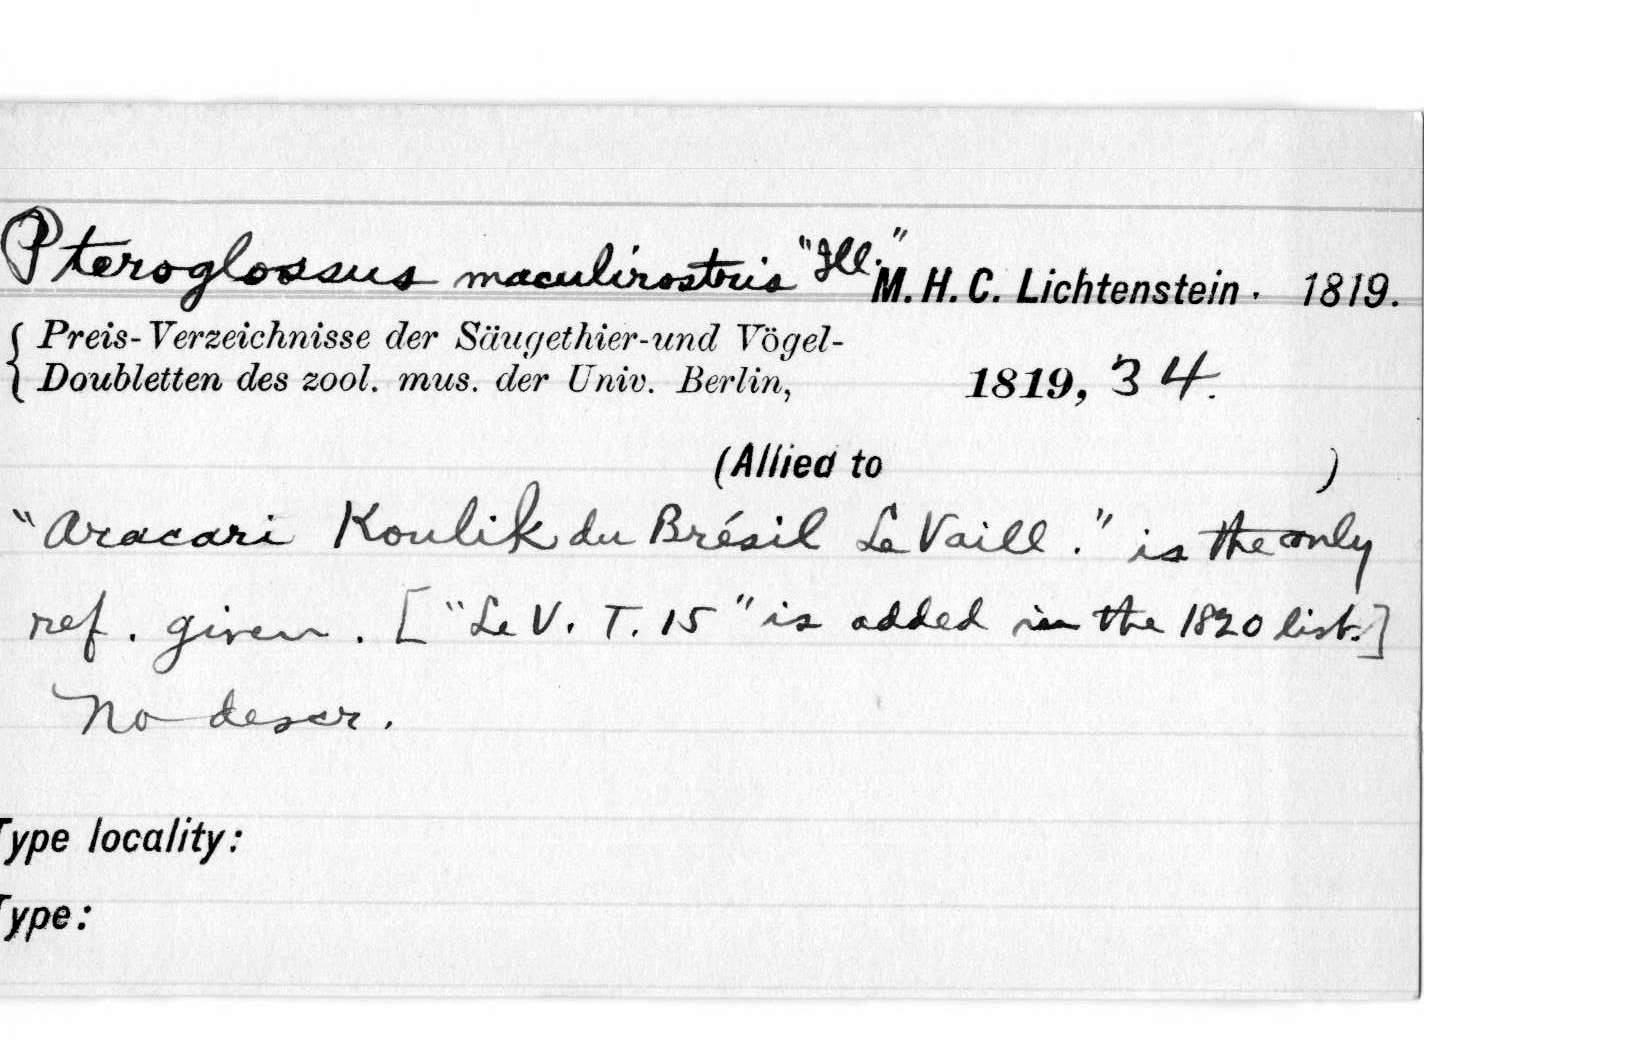 Pteroglossus maculirostris "Ill." M. H. C. Lichtenstein. 1819.
{ Preis-Verzeichnisse der Säugethier-und Vögel-
Doubletten des zool. mus. der Univ. Berlin, 1819, 34.
(Allied to )
"Aracari Koulik du Brésil Le Vaill." is the only
ref. given. ["Le V. T. 15" is added in the 1820 list.]
No descr.
Type locality:
Type: